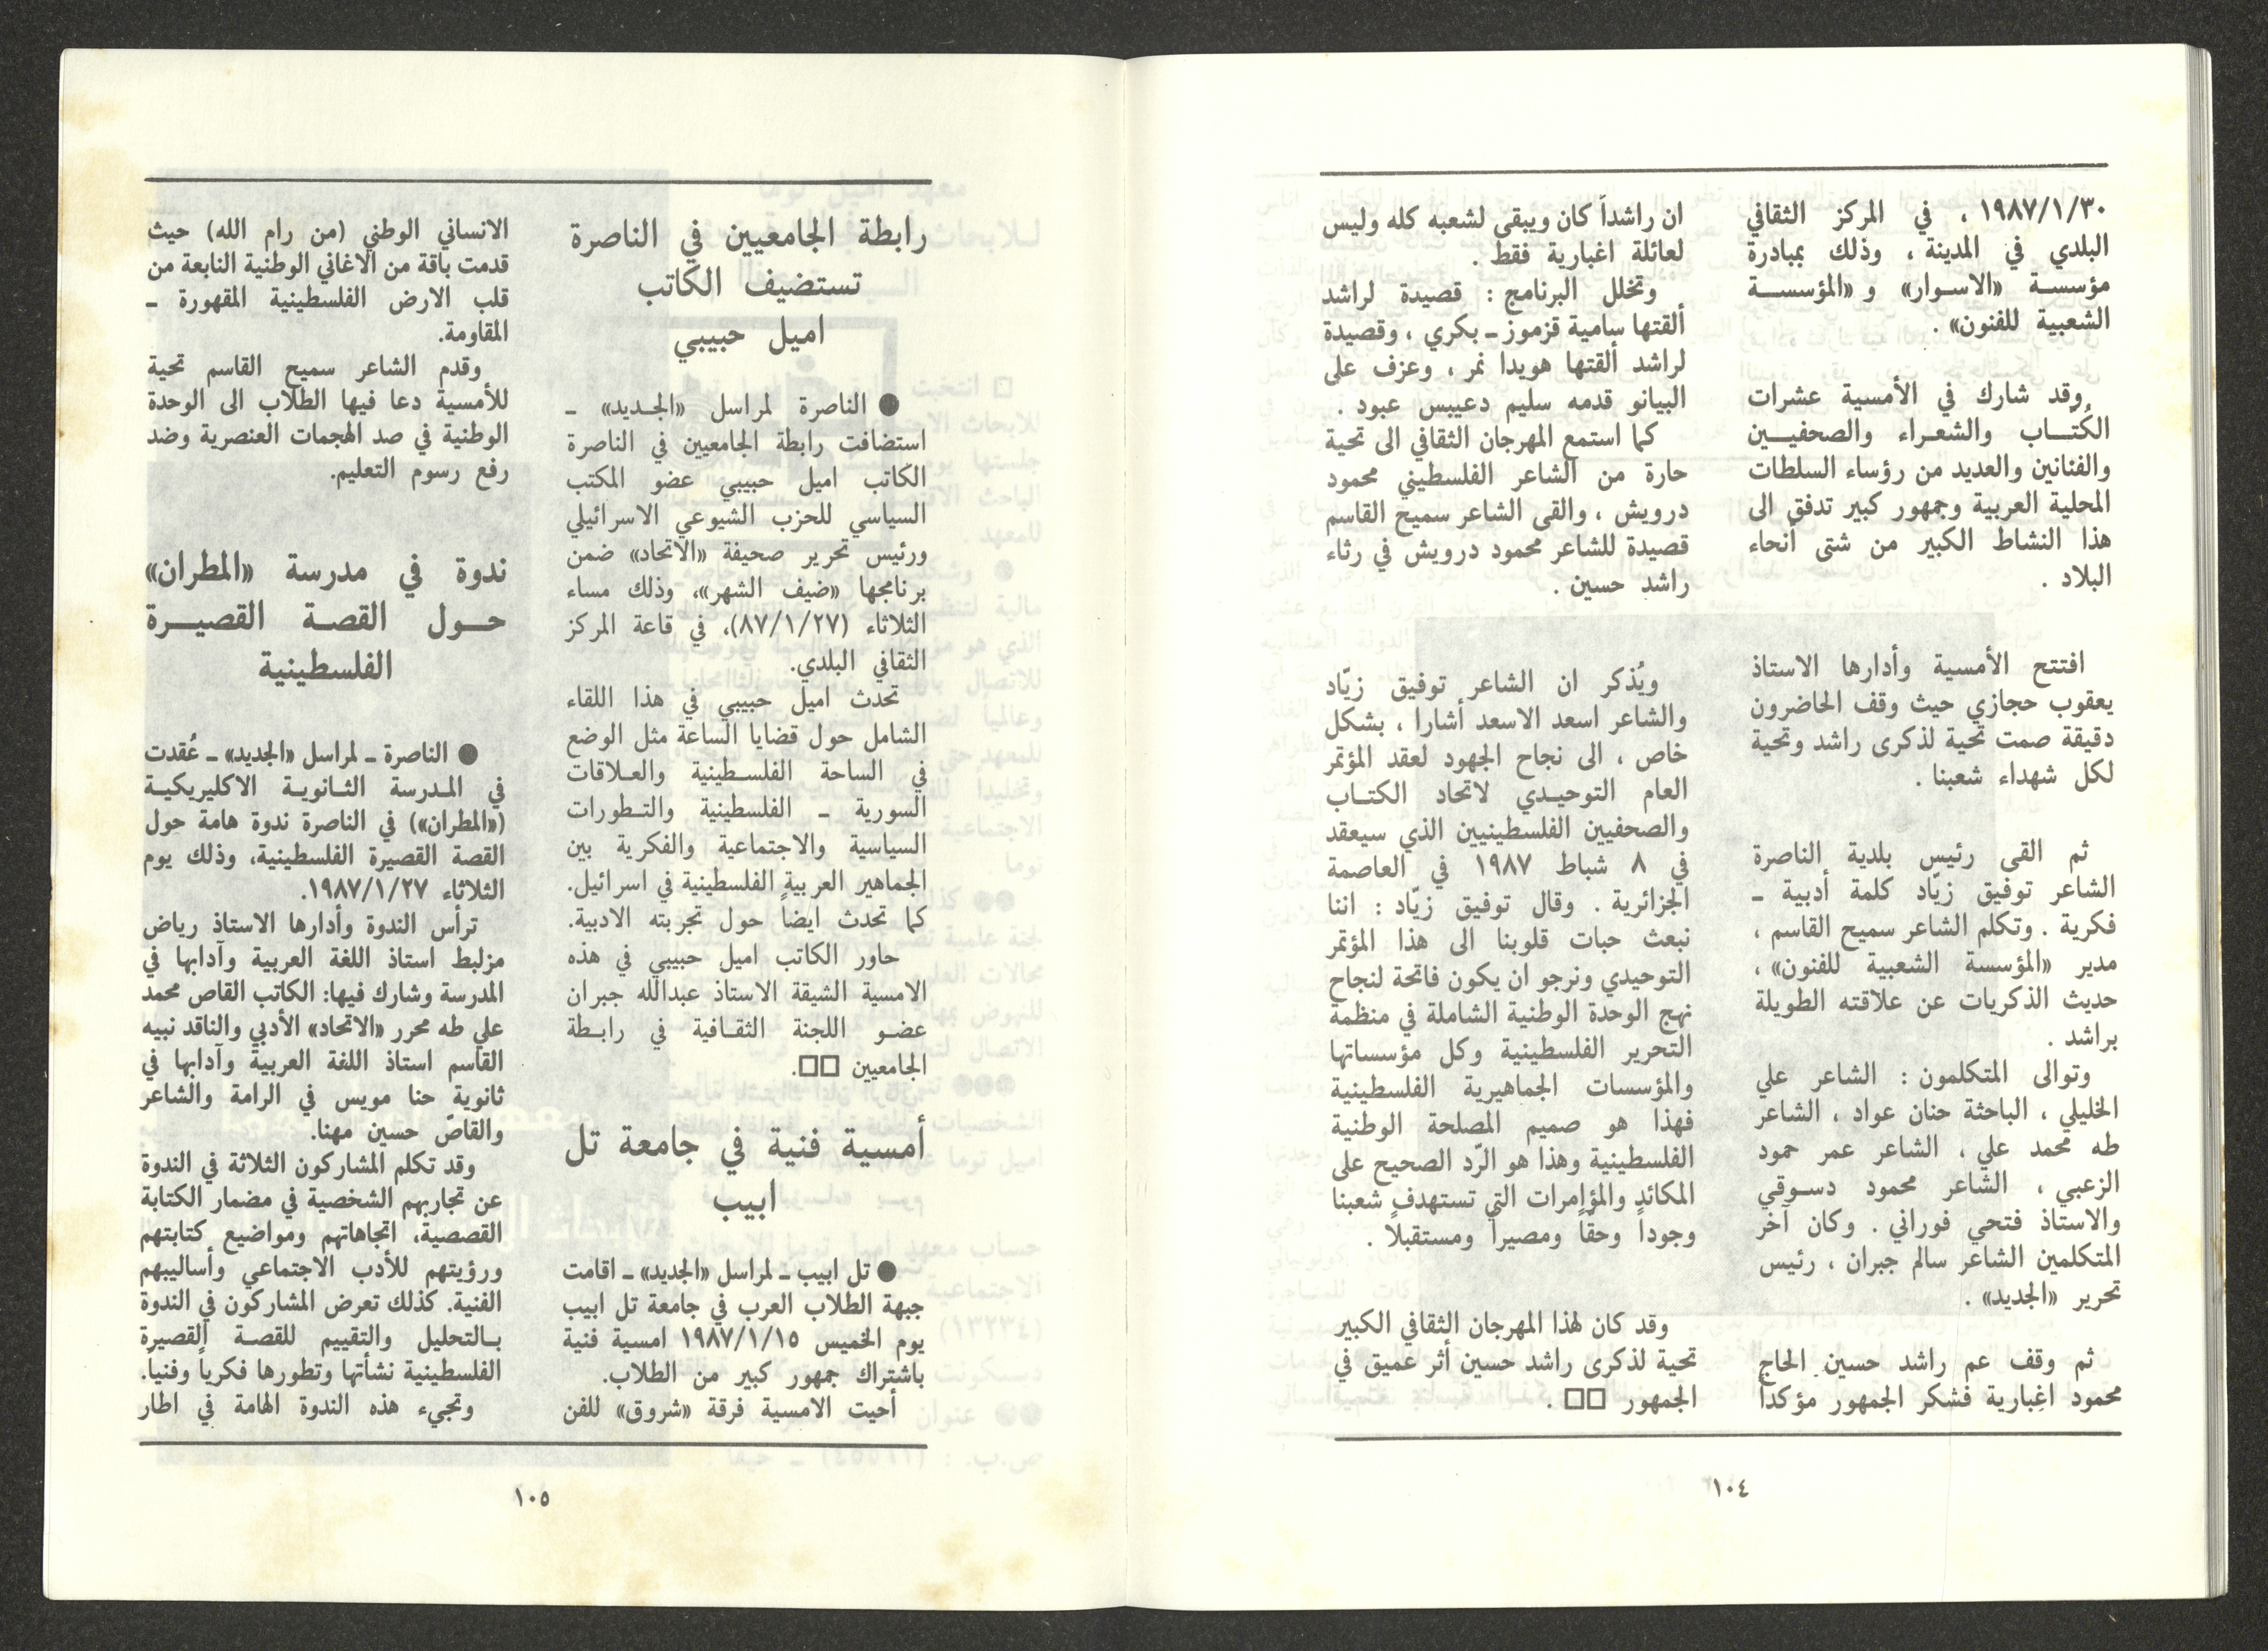 ١٩٨٧/١/٣٠ ، في المركز الثقافي
البلدي في المدينة ، وذلك بمبادرة
مؤسسة «الاسوار» و«المؤسسة
الشعبية للفنون» .
وقد شارك في الأمسية عشرات
الكُتّاب والشعراء والصحفيين
والفنانين والعديد من رؤساء السلطات
المحلية العربية وجمهور كبير تدفق الى
هذا النشاط الكبير من شتى أنحاء
البلاد .
افتتح الأمسية وأدارها الاستاذ
يعقوب حجازي حيث وقف الحاضرون
دقيقة صمت تحية لذكرى راشد وتحية
لكل شهداء شعبنا .
ثم القى رئيس بلدية الناصرة
الشاعر توفيق زيّاد كلمة أدبية ـ
فكرية . وتكلم الشاعر سميح القاسم ،
مدير «المؤسسة الشعبية للفنون» ،
حديث الذكريات عن علاقته الطويلة
براشد .
وتوالى المتكلمون : الشاعر علي
الخليلي ، الباحثة حنان عواد ، الشاعر
طه محمد علي ، الشاعر عمر حمود
الزعبي ، الشاعر محمود دسوقي
والاستاذ فتحي فوراني . وكان آخر
المتكلمين الشاعر سالم جبران ، رئيس
تحرير «الجديد» .
ثم وقف عم راشد حسين الحاج
محمود اغبارية فشكر الجمهور مؤكداً
ان راشداً كان ويبقى لشعبه كله وليس
لعائلة اغبارية فقط .
وتخلل البرنامج : قصيدة لراشد
ألقتها سامية قزموز ـ بكري ، وقصيدة
لراشد ألقتها هويدا نمر ، وعزف على
البيانو قدمه سليم دعيبس عبود .
كما استمع المهرجان الثقافي الى تحية
حارة من الشاعر الفلسطيني محمود
درويش ، والقى الشاعر سميح القاسم
قصيدة للشاعر محمود درويش في رثاء
راشد حسين .
ويُذكر ان الشاعر توفيق زيّاد
والشاعر اسعد الاسعد أشارا ، بشكل
خاص ، الى نجاح الجهود لعقد المؤتمر
العام التوحيدي لاتحاد الكتاب
والصحفيين الفلسطينيين الذي سيعقد
في ٨ شباط ١٩٨٧ في العاصمة
الجزائرية . وقال توفيق زيّاد : اننا
نبعث حبات قلوبنا الى هذا المؤتمر
التوحيدي ونرجو ان يكون فاتحة لنجاح
نهج الوحدة الوطنية الشاملة في منظمة
التحرير الفلسطينية وكل مؤسساتها
والمؤسسات الجماهيرية الفلسطينية
فهذا هو صميم المصلحة الوطنية
الفلسطينية وهذا هو الرّد الصحيح على
المكائد والمؤامرات التي تستهدف شعبنا
وجوداً وحقاً ومصيراً ومستقبلاً .
وقد كان لهذا المهرجان الثقافي الكبير
تحية لذكرى راشد حسين أثر عميق في
الجمهور □□ .
١٠٤
رابطة الجامعيين في الناصرة
تستضيف الكاتب
اميل حبيبي
● الناصرة لمراسل «الجديد» ـ
استضافت رابطة الجامعيين في الناصرة
الكاتب اميل حبيبي عضو المكتب
السياسي للحزب الشيوعي الاسرائيلي
ورئيس تحرير صحيفة «الاتحاد» ضمن
برنامجها «ضيف الشهر»، وذلك مساء
الثلاثاء (٨٧/١/٢٧)، في قاعة المركز
الثقافي البلدي.
تحدث اميل حبيبي في هذا اللقاء
الشامل حول قضايا الساعة مثل الوضع
في الساحة الفلسطينية والعلاقات
السورية ـ الفلسطينية والتطورات
السياسية والاجتماعية والفكرية بين
الجماهير العربية الفلسطينية في اسرائيل.
كما تحدث ايضاً حول تجربته الادبية.
حاور الكاتب اميل حبيبي في هذه
الامسية الشيقة الاستاذ عبدالله جبران
عضو اللجنة الثقافية في رابطة
الجامعيين □□.
أمسية فنية في جامعة تل
ابيب
● تل ابيب ـ لمراسل «الجديد» ـ اقامت
جبهة الطلاب العرب في جامعة تل ابيب
يوم الخميس ١٩٨٧/١/١٥ امسية فنية
باشتراك جمهور كبير من الطلاب.
أحيت الامسية فرقة «شروق» للفن
الانساني الوطني (من رام الله) حيث
قدمت باقة من الاغاني الوطنية النابعة من
قلب الارض الفلسطينية المقهورة ـ
المقاومة.
وقدم الشاعر سميح القاسم تحية
للأمسية دعا فيها الطلاب الى الوحدة
الوطنية في صد الهجمات العنصرية وضد
رفع رسوم التعليم.
ندوة في مدرسة «المطران»
حول القصة القصيرة
الفلسطينية
● الناصرة ـ لمراسل «الجديد» ـ عُقدت
في المدرسة الثانوية الاكليريكية
(«المطران») في الناصرة ندوة هامة حول
القصة القصيرة الفلسطينية، وذلك يوم
الثلاثاء ١٩٨٧/١/٢٧.
ترأس الندوة وأدارها الاستاذ رياض
مزلبط استاذ اللغة العربية وآدابها في
المدرسة وشارك فيها: الكاتب القاص محمد
علي طه محرر «الاتحاد» الأدبي والناقد نبيه
القاسم استاذ اللغة العربية وآدابها في
ثانوية حنا مويس في الرامة والشاعر
والقاصّ حسين مهنا.
وقد تكلم المشاركون الثلاثة في الندوة
عن تجاربهم الشخصية في مضمار الكتابة
القصصية، اتجاهاتهم ومواضيع كتابتهم
ورؤيتهم للأدب الاجتماعي وأساليبهم
الفنية. كذلك تعرض المشاركون في الندوة
بالتحليل والتقييم للقصة القصيرة
الفلسطينية نشأتها وتطورها فكرياً وفنياً.
وتجيء هذه الندوة الهامة في اطار
١٠٥